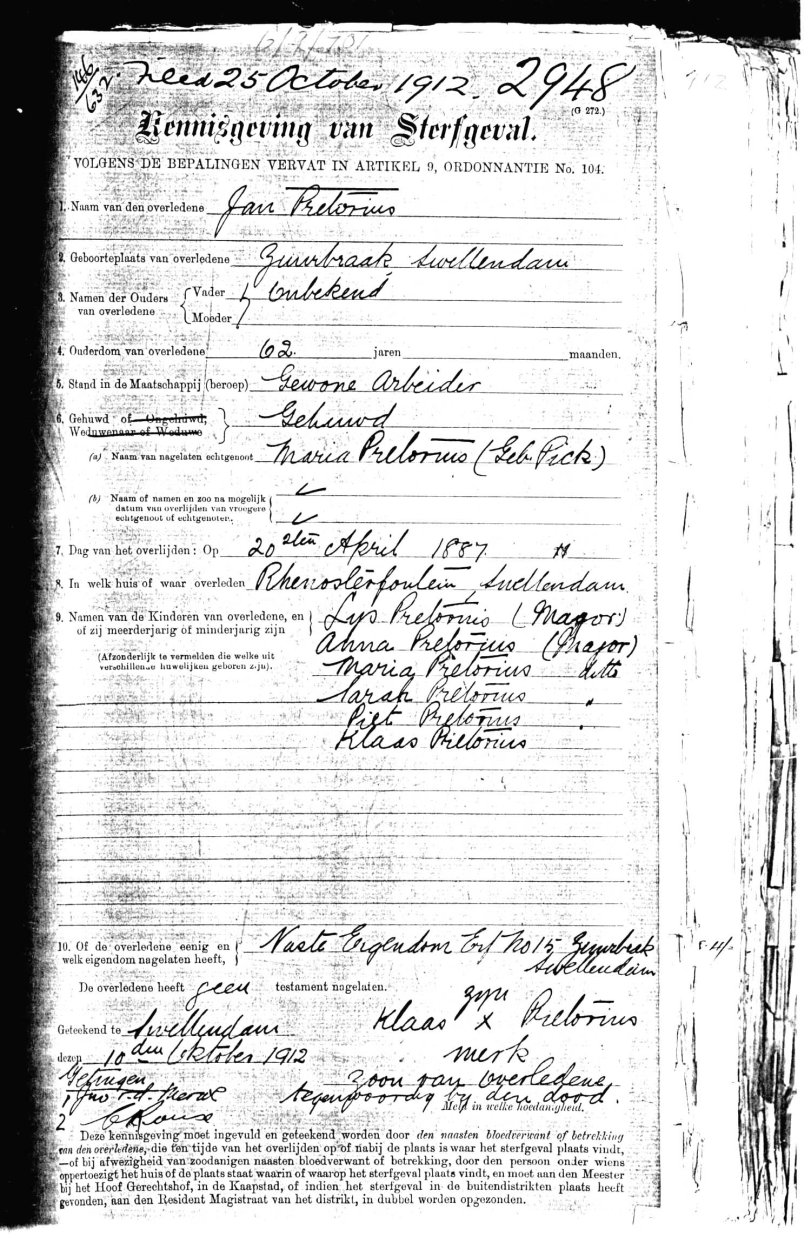 146/632. Filed 25 October 1912. 2948
(G 272.)
Kennisgeving van Sterfgeval.
VOLGENS DE BEPALINGEN VERVAT IN ARTIKEL 9, ORDONNANTIE No. 104.
1. Naam van den overledene Jan Pretorius
2. Geboorteplaats van overledene Zuurbraak, Swellendam
3. Namen der Ouders van overledene { Vader } Onbekend
{ Moeder }
4. Ouderdom van overledene 62. jaren maanden.
5. Stand in de Maatschappij (beroep) Gewone Arbeider
6. Gehuwd of Ongehuwd; Gehuwd
Weduwenaar of Weduwe
(a) Naam van nagelaten echtgenoot Maria Pretorius (Geb. Pick)
(b) Naam of namen en zoo na mogelijk
datum van overlijden van vroegere
echtgenoot of echtgenoten.
7. Dag van het overlijden: Op 20sten April 1887
8. In welk huis of waar overleden Rhenosterfontein, Swellendam
9. Namen van de Kinderen van overledene, en
of zij meerderjarig of minderjarig zijn
(Afzonderlijk te vermelden die welke uit
verschillende huwelijken geboren zijn).
Lys Pretorius (Major)
Anna Pretorius (Major)
Maria Pretorius ditto
Sarah Pretorius "
Piet Pretorius "
Klaas Pretorius
10. Of de overledene eenig en
welk eigendom nagelaten heeft,
Vaste Eigendom Erf No 15 Zuurbraak
Swellendam
De overledene heeft geen testament nagelaten.
Klaas zyn X merk Pretorius
Geteekend te Swellendam
dezen 10den Oktober 1912
zoon van overledene
tegenwoordig by den dood.
Meld in welke hoedanigheid.
Getuigen
1
2 C Roux
Deze kennisgeving moet ingevuld en geteekend worden door den naasten bloedverwant of betrekking
van den overledene, die ten tijde van het overlijden op of nabij de plaats is waar het sterfgeval plaats vindt,
—of bij afwezigheid van zoodanigen naasten bloedverwant of betrekking, door den persoon onder wiens
oppertoezigt het huis of de plaats staat waarin of waarop het sterfgeval plaats vindt, en moet aan den Meester
bij het Hoof Gerechtshof, in de Kaapstad, of indien het sterfgeval in de buitendistrikten plaats heeft
gevonden, aan den Resident Magistraat van het distrikt, in dubbel worden opgezonden.